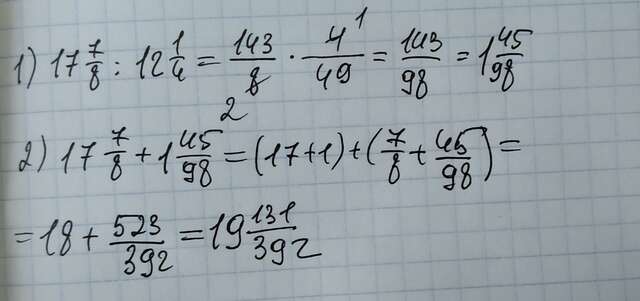 1) 17 7/8 : 12 1/4 = 143/8 2 · 4 1/49 = 143/98 = 1 45/98
2) 17 7/8 + 1 45/98 = (17+1) + (7/8 + 45/98) =
= 18 + 523/392 = 19 131/392